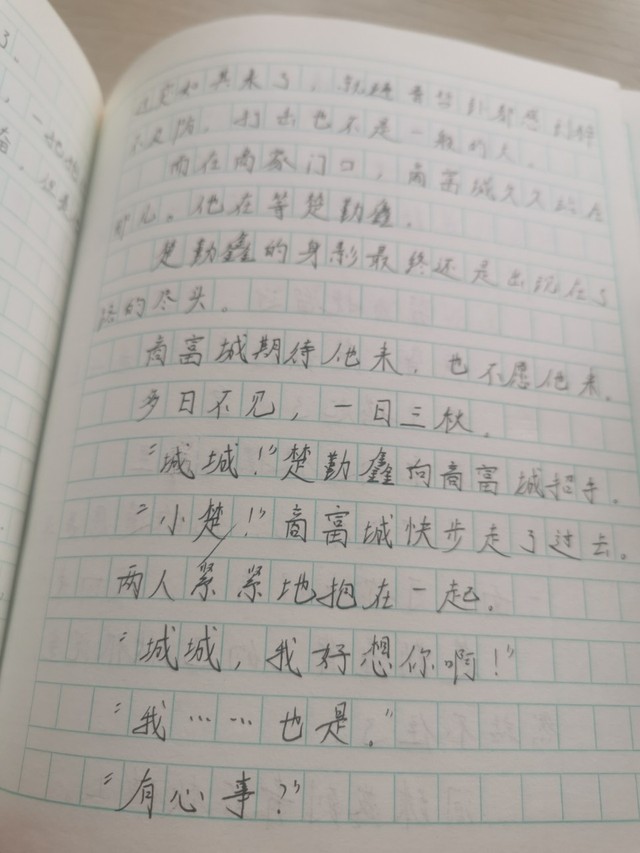 了，
不是一般的人。
而在商家门口，商富城久久站在
那儿。他在等楚勤鑫。
楚勤鑫的身影最终还是出现在了
的尽头。
商富城期待他来，也不愿他来。
多日不见，一日三秋。
“城城！”楚勤鑫向商富城招手。
“小楚！”商富城快步走了过去。
两人紧紧地抱在一起。
“城城，我好想你啊！”
“我……也是。”
“有心事？”